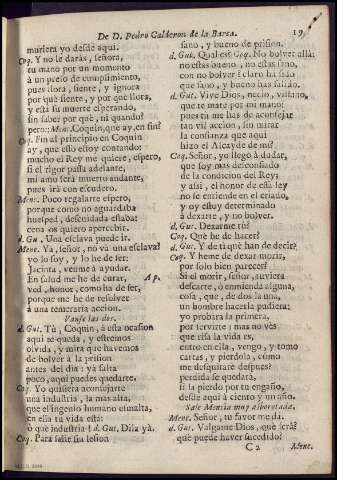 De D. Pedro Calderon de la Barca. 19
muriera yo desde aqui.
Coq. Y no le darás, señora,
tu mano por un momento
à un preso de cumplimiento,
pues llora, siente, y ignora
por què siente, y por què llora,
y està su muerte esperando,
sin saber por què, ni quando?
pero: Men. Coquin, que ay, en fin?
Coq. Fin al principio en Coquin
ay, que esso estoy contando:
mucho el Rey me quiere, espero,
si el rigor passa adelante,
mi amo serà muerto andante,
pues irà con escudero.
Menc. Poco regalarte espero,
porque como no aguardaba
huesped, descuidada estaba:
cena os quiero apercebir.
d. Gu. Una esclava puede ir.
Menc. Ya, señor, no và una esclava?
yo lo soy, y lo he de ser:
Jacinta, venme à ayudar.
En salud me he de curar, Ap.
ved, honor, como ha de ser,
porque me he de resolver
à una temeraria accion.
Vanse las dos.
d. Gut. Tù, Coquin, à esta ocasion
aqui te queda, y estremos
olvida, y mira que havemos
de bolver à la prision
antes del dia: yà falta
poco, aqui puedes quedarte.
Coq. Yo quisiera aconsejarte
una industria, la mas alta,
que el ingenio humano esmalta,
en ella tu vida està:
ò què industria! d. Gut. Dila yà.
Coq. Para salir sin lesion
sano, y bueno de prision.
d. Gut. Qual es? Coq. No bolver allà:
no estàs bueno, no estàs sano,
con no bolver? claro ha sido
que sano, y bueno has salido.
d. Gut. Vive Dios, necio, villano,
que te mate por mi mano:
pues tu me has de aconsejar
tan vil accion, sin mirar
la confianza que aqui
hizo el Alcayde de mi?
Coq. Señor, yo llego à dudar,
que soy mas desconfiado
de la condicion del Rey;
y assi, el honor de essa ley
no se entiende en el criado,
y oy estoy determinado
à dexarte, y no bolver.
d. Gut. Dexarme tù?
Coq. Què he de hacer?
d. Gut. Y de ti què han de decir?
Coq. Y heme de dexar morir,
por solo bien parecer?
Si el morir, señor, tuviera
descarte, ò enmienda alguna,
cosa, que, de dos la una,
un hombre hacerla pudiera;
yo probara la primera,
por servirte: mas no vès
que essa la vida es,
entro en ella, vengo, y tomo
cartas, y pierdola, còmo
me desquitarè despues?
perdida se quedarà,
si la pierdo por tu engaño,
desde aqui à ciento y un año.
Sale Mencia muy alborotada.
Menc. Señor, tu favor me dà.
d. Gut. Valgame Dios, què serà?
què puede haver sucedido?
C 2 Menc.